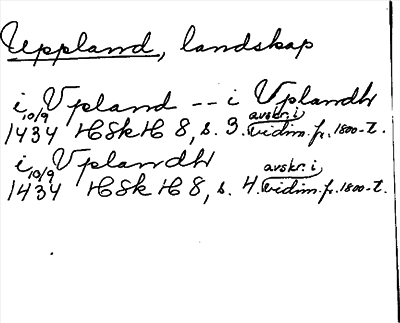 Uppland, landskap
i Vpland -- i Vplandh
10/9 1434 HSkH 8, s. 3. avskr. i vidim. fr. 1800-t.
i Vplandh
10/9 1434 HSkH 8, s. 4. avskr. i vidim. fr. 1800-t.